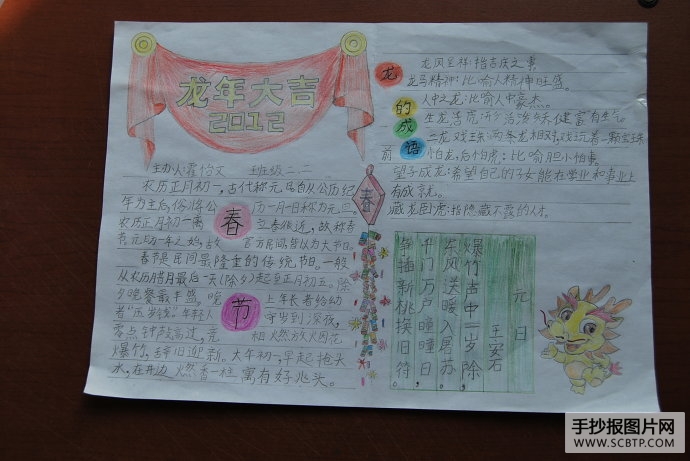 龙年大吉
2012
主办人:霍怡文 班级:二.二
农历正月初一,古代称元旦,自从公历纪
年为主后,俗将公历一月一日称为元旦,
农历正月初一离立春很近,故称春
节,元为一年之始,故官方民间皆以为大节日。
春节是民间最隆重的传统节日。一般
从农历腊月最后一天(除夕)起至正月初五。除
夕晚餐最丰盛。晚上年长者给幼
者“压岁钱”年轻人守岁到深夜,
零点钟敲过,竞相燃放火因花
爆竹,辞旧迎新。大年初一,早起抢头
水,在井边燃香一柱,寓有好兆头。
春
节
春
龙的成语
龙凤呈祥:指吉庆之事。
龙马精神:比喻人精神旺盛。
人中之龙:比喻人中豪杰。
生龙活虎:形容活泼矫健,富有生气。
二龙戏珠:两条龙相对,戏玩着一颗宝珠。
前怕龙,后怕虎:比喻胆小怕事。
望子成龙:希望自己的子女能在学业和事业上
有成就。
藏龙卧虎:指隐藏不露的人才。
元日
王安石
爆竹声中一岁除,
东风送暖入屠苏。
千门万户瞳瞳日,
争插新桃换旧符。
手抄报图片网
WWW.SCBTP.COM